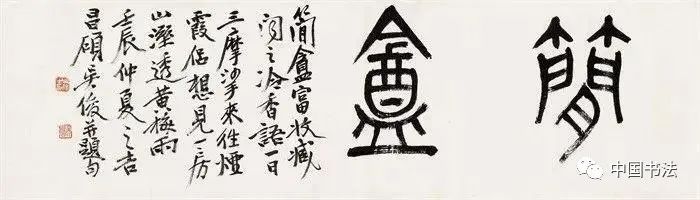 簡盦
簡盦富收藏
之冷香語一日
三摩挲來往煙
霞侶想見一房
山溼透黃梅雨
壬辰仲夏之吉
昌碩吳俊并題句
中国书法